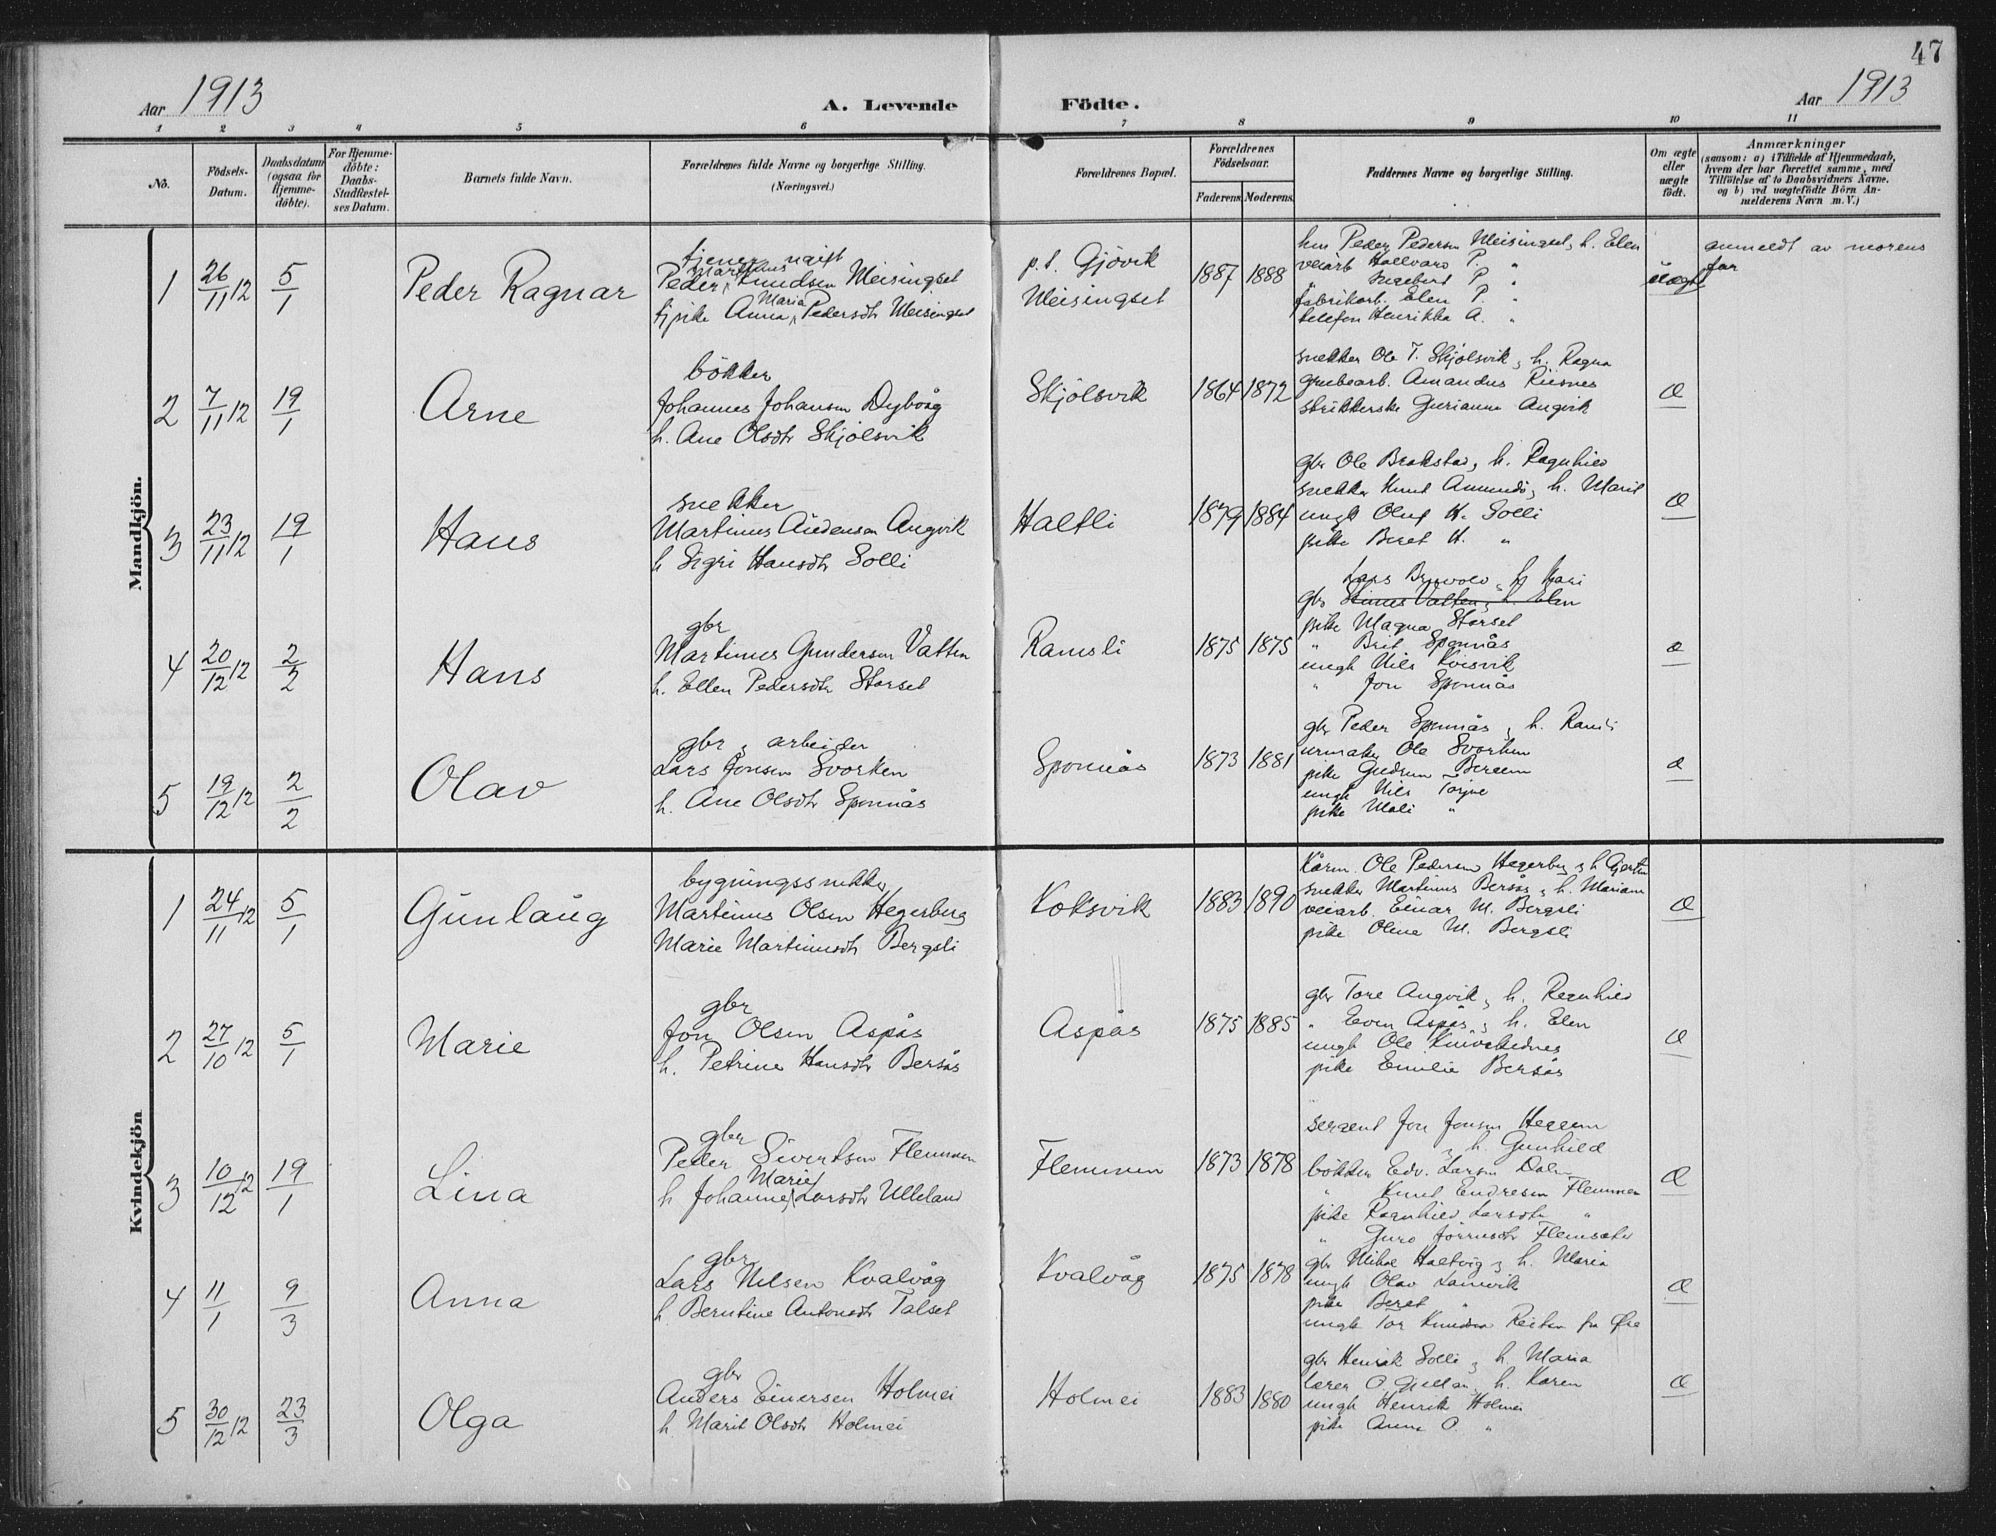 47
Aar 1913
A. Levende Födte.
Aar 1913
1 2 3 4 5 6 7 8 9 10 11
No.
Födsels-Datum.
Daabsdatum (ogsaa for Hjemme-döbte).
For Hjemme-döbte: Daabs-Stadfæstel-ses Datum.
Barnets fulde Navn.
Forældrenes fulde Navne og borgerlige Stilling.
(Næringsvei.)
Forældrenes Bopæl.
Forældrenes Födselsaar.
Faderens Moderens
Faddernes Navne og borgerlige Stilling.
Om ægte eller uægte födt.
Anmærkninger
(saasom: a) i Tilfælde af Hjemmedaab,
hvem der har forrettet samme, med
Tilföielse af to Daabsvidners Navne.
og b) ved uægtefödte Börn An-
melderens Navn m. V.)
Mandkjön.
1 26/11 12 5/1 Peder Ragnar
tjener ugift
Peder Marthinus Knudsen Meisingset
pike Anna Maria Pedersdtr Meisingset
p.t. Gjövik
Meisingset
1887 1888
hm Peder Pedersen Meisingset, h. Elen
veiarb Hallvard P. "
" Ingebert P. "
fabrikarb. Elen P. "
telefon Henrikka A. "
uægt
anmeldt av morens
far
2 7/11 12 19/1 Arne
bökker
Johannes Johansen Dybvåg
h. Ane Olsdtr Skjölsvik
Skjölsvik
1864 1872
snekker Ole T. Skjölsvik, h. Ragna
grubearb. Amandus Riisnes
strikkerske Gurianna Angvik
æ
3 23/11 12 19/1 Hans
snekker
Martinus Andersen Angvik
h Sigri Hansdtr Solli
Haltli
1879 1884
gbr Ole Brakstad, h. Ragnhild
snekker Knut Amunds, h. Marit
ungk Oluf H. Solli
pike Beret H. "
æ
4 20/12 12 2/2 Hans
gbr
Martinus Gundersen Vatten
h. Ellen Pedersdtr Storset
Ramsli
1875 1875
Lars Bruvold, h Kari
gbr Vatten, h. Elen
pike Magna Storset
" Brit Sponnås
ungk Nils Kvisvik
" Jon Sponnås
æ
5 19/12 12 2/2 Olav
gbr, arbeider
Lars Jonsen Svorken
h. Ane Olsdtr Sponnås
Sponnås
1873 1881
gbr Peder Sponnås, h. Randi
urmaker Ole Svorken
pike Gudrun Bergem
ungk Nils Torjne
pike Mali "
æ
Kvindekjön
1 24/11 12 5/1 Gunlaug
bygningssnekker
Martinus Olsen Hegerberg
Marie Martinusdtr Bergsli
Koksvik
1883 1890
Kårm. Ole Pedersen Hegerberg, h Gjertru
snekker Martinus Bersås, h. Mariann
veiarb. Einar M. Bergsli
pike Oline M. Bergsli
æ
2 27/10 12 5/1 Marie
gbr
Jon Olsen Aspås
h. Petrine Hansdtr Bersås
Aspås
1875 1885
gbr Tore Angvik, h. Ragnhild
" Even Aspås, h. Elen
ungk Ole
pike Emilie Bersås
æ
3 10/12 12 19/1 Lina
gbr
Peder Sivertsen Flemmen
h Johanne Marie Larsdtr Ulleland
Flemmen
1873 1878
sergent Jon Jonsen Heggem
, h. Gunhild
bökker Edv. Larsen Dale
" Knut Endresen Flemmen
pike Ragnhild Larsdtr "
" Guro Jörrunsdtr Flemsæter
æ
4 11/1 9/3 Anna
gbr
Lars Nilsen Kvalvåg
h Berntine Antonsdtr Talset
Kvalvåg
1875 1878
gbr Mikal Haltvig, h. Maria
ungk Olav Langvik
pike Beret "
ungk Tor Knudsen Reiten fra Öre
æ
5 30/12 12 23/3 Olga
gbr
Anders Einersen Holmei
h. Marit Olsdtr Holmei
Holmei
1883 1880
gbr Henrik Solli, h. Maria
lærer O. Gjeldan, h. Karen
ungk Henrik Holmei
pike Anna O. "
æ